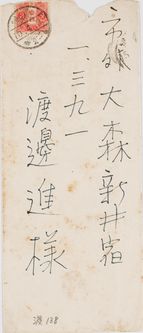 市外大森新井宿
一、三九一
渡邊進様
渡 128